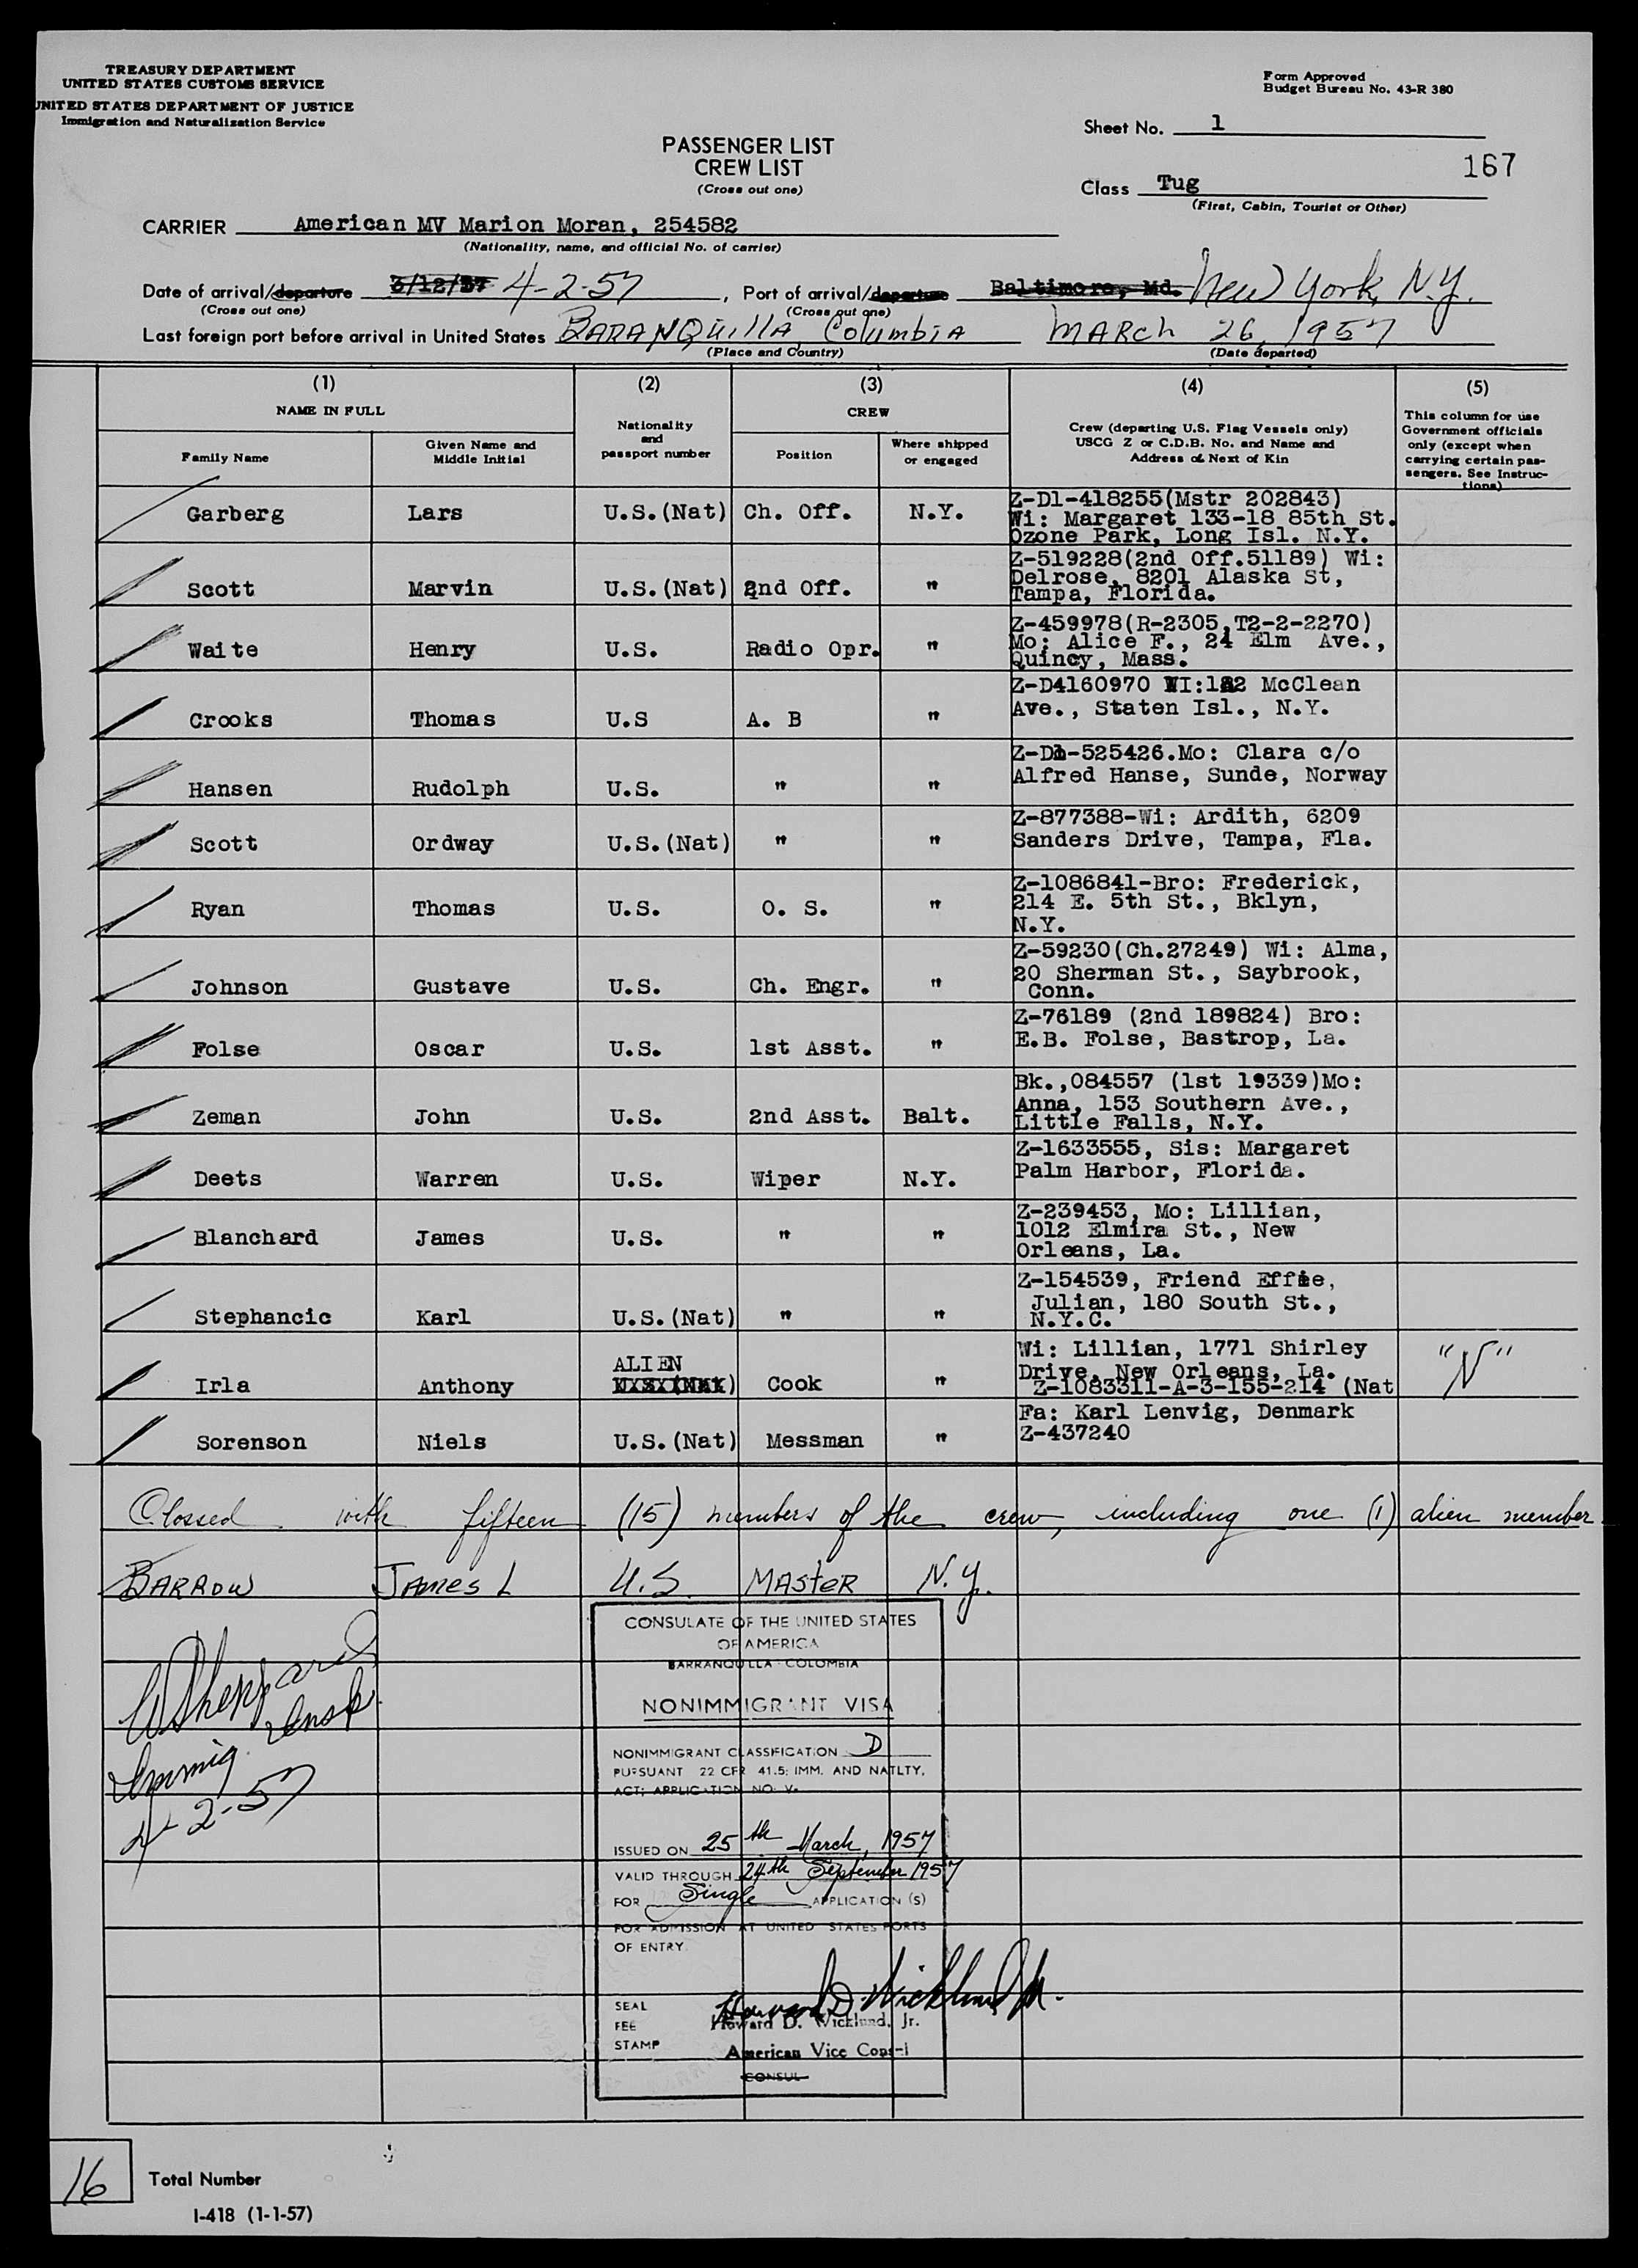 TREASURY DEPARTMENT
UNITED STATES CUSTOMS SERVICE
UNITED STATES DEPARTMENT OF JUSTICE
Immigration and Naturalization Service
Form Approved
Budget Bureau No. 43-R 380
Sheet No. 1
167
PASSENGER LIST
CREW LIST
(Cross out one)
Class Tug
(First, Cabin, Tourist or Other)
CARRIER American MV Marion Moran, 254582
(Nationality, name, and official No. of carrier)
Date of arrival/departure 3/12/57 4-2-57, Port of arrival/departure Baltimore, Md. New York, N.Y.
(Cross out one) (Cross out one)
Last foreign port before arrival in United States BARANQUILLA, Columbia MARCH 26, 1957
(Place and Country) (Date departed)
(1) (2) (3) (4) (5)
NAME IN FULL
Family Name
Given Name and
Middle Initial
Nationality
and
passport number
CREW
Position
Where shipped
or engaged
Crew (departing U.S. Flag Vessels only)
USCG Z or C.D.B. No. and Name and
Address of Next of Kin
This column for use
Government officials
only (except when
carrying certain pas-
sengers. See Instruc-
tions)
Garberg Lars U.S.(Nat) Ch. Off. N.Y.
Z-D1-418255(Mstr 202843)
Wi: Margaret 133-18 85th St.
Ozone Park, Long Isl. N.Y.
Scott Marvin U.S.(Nat) 2nd Off. "
Z-519228(2nd Off.51189) Wi:
Delrose, 8201 Alaska St,
Tampa, Florida.
Waite Henry U.S. Radio Opr. "
Z-459978(R-2305,T2-2-2270)
Mo: Alice F., 24 Elm Ave.,
Quincy, Mass.
Crooks Thomas U.S A. B "
Z-D4160970 WI:182 McClean
Ave., Staten Isl., N.Y.
Hansen Rudolph U.S. " "
Z-D1-525426.Mo: Clara c/o
Alfred Hanse, Sunde, Norway
Scott Ordway U.S.(Nat) " "
Z-877388-Wi: Ardith, 6209
Sanders Drive, Tampa, Fla.
Ryan Thomas U.S. O. S. "
Z-1086841-Bro: Frederick,
214 E. 5th St., Bklyn,
N.Y.
Johnson Gustave U.S. Ch. Engr. "
Z-59230(Ch.27249) Wi: Alma,
20 Sherman St., Saybrook,
Conn.
Folse Oscar U.S. 1st Asst. "
Z-76189 (2nd 189824) Bro:
E.B. Folse, Bastrop, La.
Zeman John U.S. 2nd Asst. Balt.
Bk.,084557 (1st 19339)Mo:
Anna, 153 Southern Ave.,
Little Falls, N.Y.
Deets Warren U.S. Wiper N.Y.
Z-1633555, Sis: Margaret
Palm Harbor, Florida.
Blanchard James U.S. " "
Z-239453, Mo: Lillian,
1012 Elmira St., New
Orleans, La.
Stephancic Karl U.S.(Nat) " "
Z-154539, Friend Effie,
Julian, 180 South St.,
N.Y.C.
Irla Anthony ALIEN Cook "
Wi: Lillian, 1771 Shirley
Drive, New Orleans, La.
Z-1083311-A-3-155-214 (Nat
"N"
Sorenson Niels U.S.(Nat) Messman "
Fa: Karl Lenvig, Denmark
Z-437240
Clossed with fifteen (15) members of the crew, including one (1) alien member
BARROW JAMES L U.S. MASTER N.Y.
CONSULATE OF THE UNITED STATES
OF AMERICA
BARRANQUILLA COLOMBIA
NONIMMIGRANT VISA
NONIMMIGRANT CLASSIFICATION D
PURSUANT 22 CFR 41.5; IMM. AND NATLTY.
ACT; APPLICATION NO: V-
ISSUED ON 25th March, 1957
VALID THROUGH 24th September 1957
FOR Single APPLICATION (S)
FOR ADMISSION AT UNITED STATES PORTS
OF ENTRY.
SEAL
FEE
STAMP
Howard D. Wicklund Jr.
Howard D. Wicklund, Jr.
American Vice Consul
CONSUL
Immig. Insp
4-2-57
16
Total Number
I-418 (1-1-57)